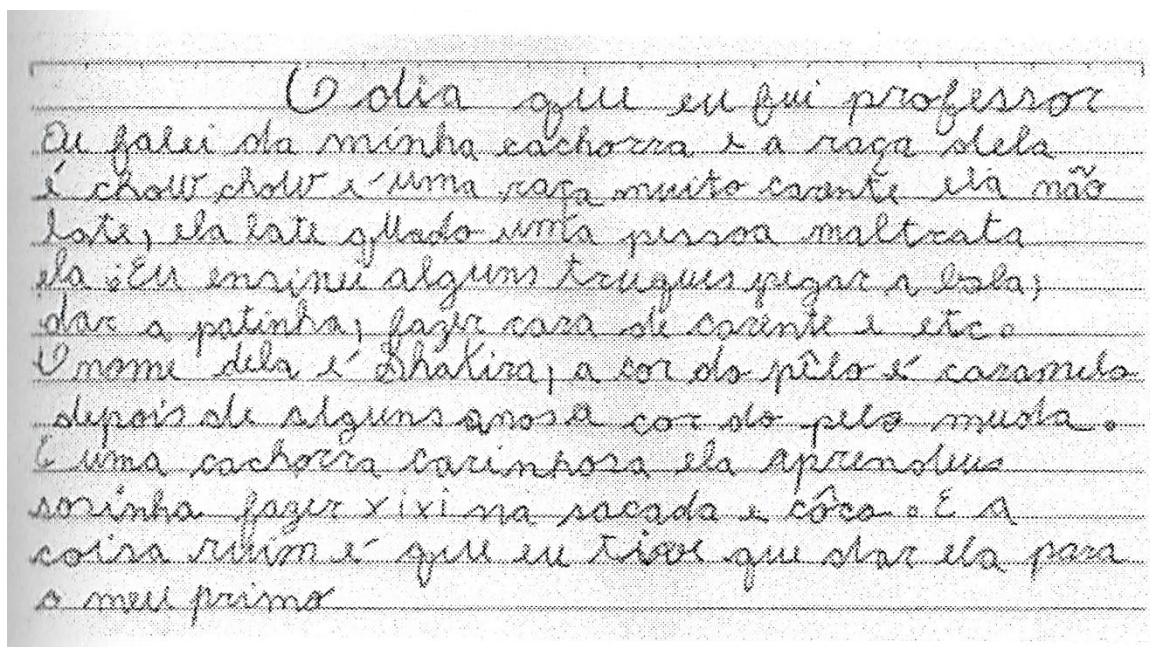 O dia que eu fui professor
Eu falei da minha cachorra e a raça dela
é chow chow é uma raça muito carente ela não
late, ela late quado uma pessoa maltrata
ela. Eu ensinei alguns truques pegar a bola,
dar a patinha, fazer cara de carente e etc.
O nome dela é Shakira, a cor do pêlo é caramelo
depois de alguns anos a cor do pelo muda.
E uma cachorra carinhosa ela aprendeu
sozinha fazer xixi na sacada e côco. E a
coisa ruim é que eu tive que dar ela para
o meu primo